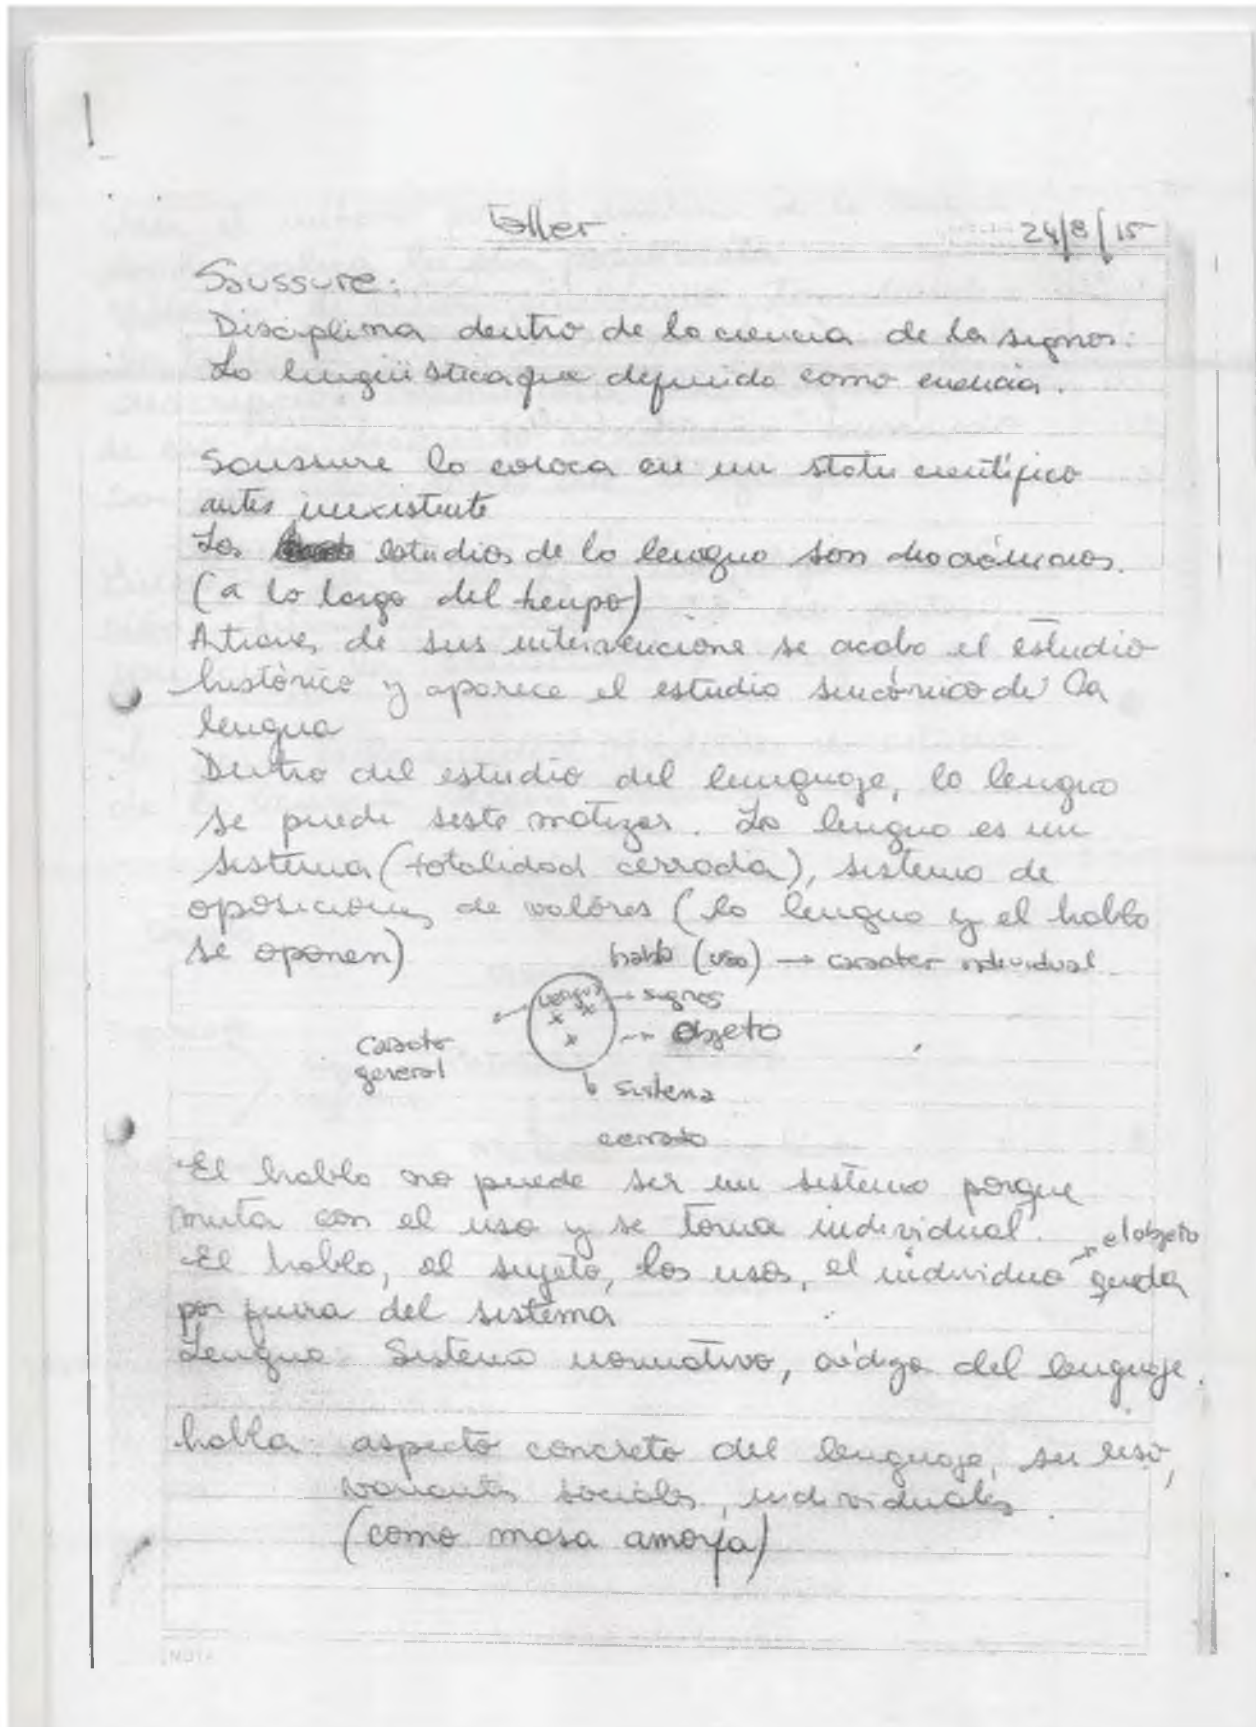 Taller
24/8/15
Saussure:
Disciplina dentro de la ciencia de los signos:
La lingüistica que definido como ciencia.
Saussure lo coloca en un statu científico
antes inexistente
Los estudios de la lengua son diacrónicos.
(a lo largo del tiempo)
Atraves de sus intervenciones se acaba el estudio
histórico y aparece el estudio sincrónico de la
lengua
Dentro del estudio del lenguaje, la lengua
se puede sistematizar. La lengua es un
sistema (totalidad cerrada), sistema de
oposiciones de valores (la lengua y el habla
se oponen)
habla (uso) → caracter individual
lengua → signos
→ objeto
caracter
general
sistema
cerrado
El habla no puede ser un sistema porque
muta con el uso y se torna individual.
→ el objeto
El habla, el sujeto, los usos, el individuo queda
por fuera del sistema
Lengua: Sistema normativo, código del lenguaje.
habla: aspecto concreto del lenguaje, su uso,
variantes sociales, individuales
(como masa amorfa)